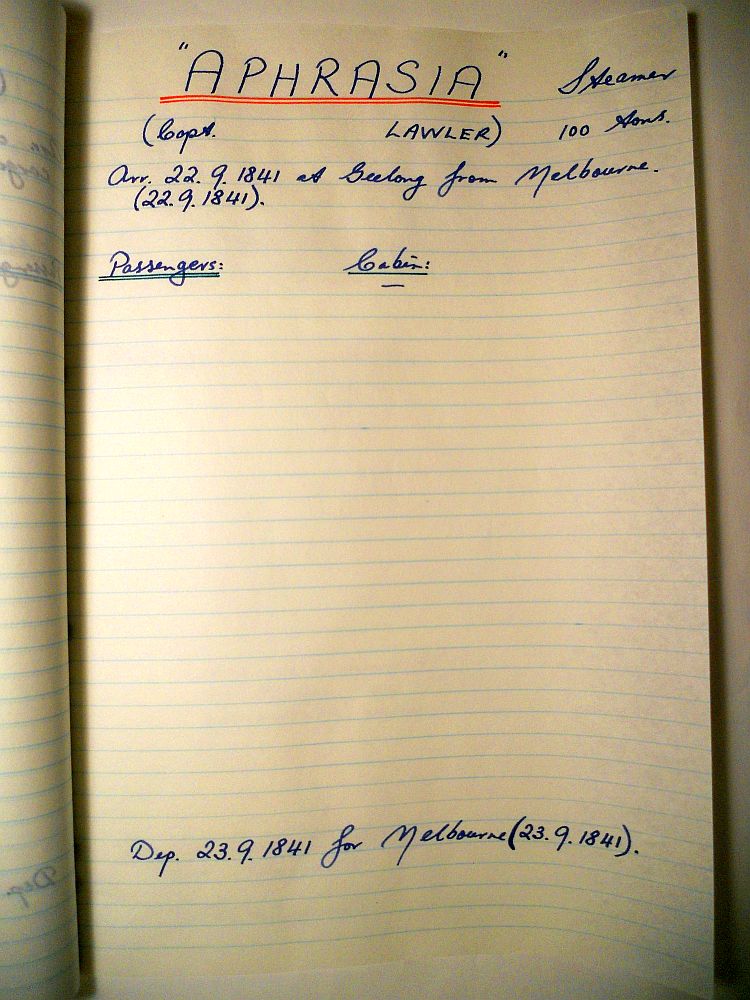 "APHRASIA" Steamer
(Capt. LAWLER) 100 tons.
Arr. 22.9.1841 at Geelong from Melbourne.
(22.9.1841).
Passengers: Cabin:
—
Dep. 23.9.1841 for Melbourne (23.9.1841).
Dep.